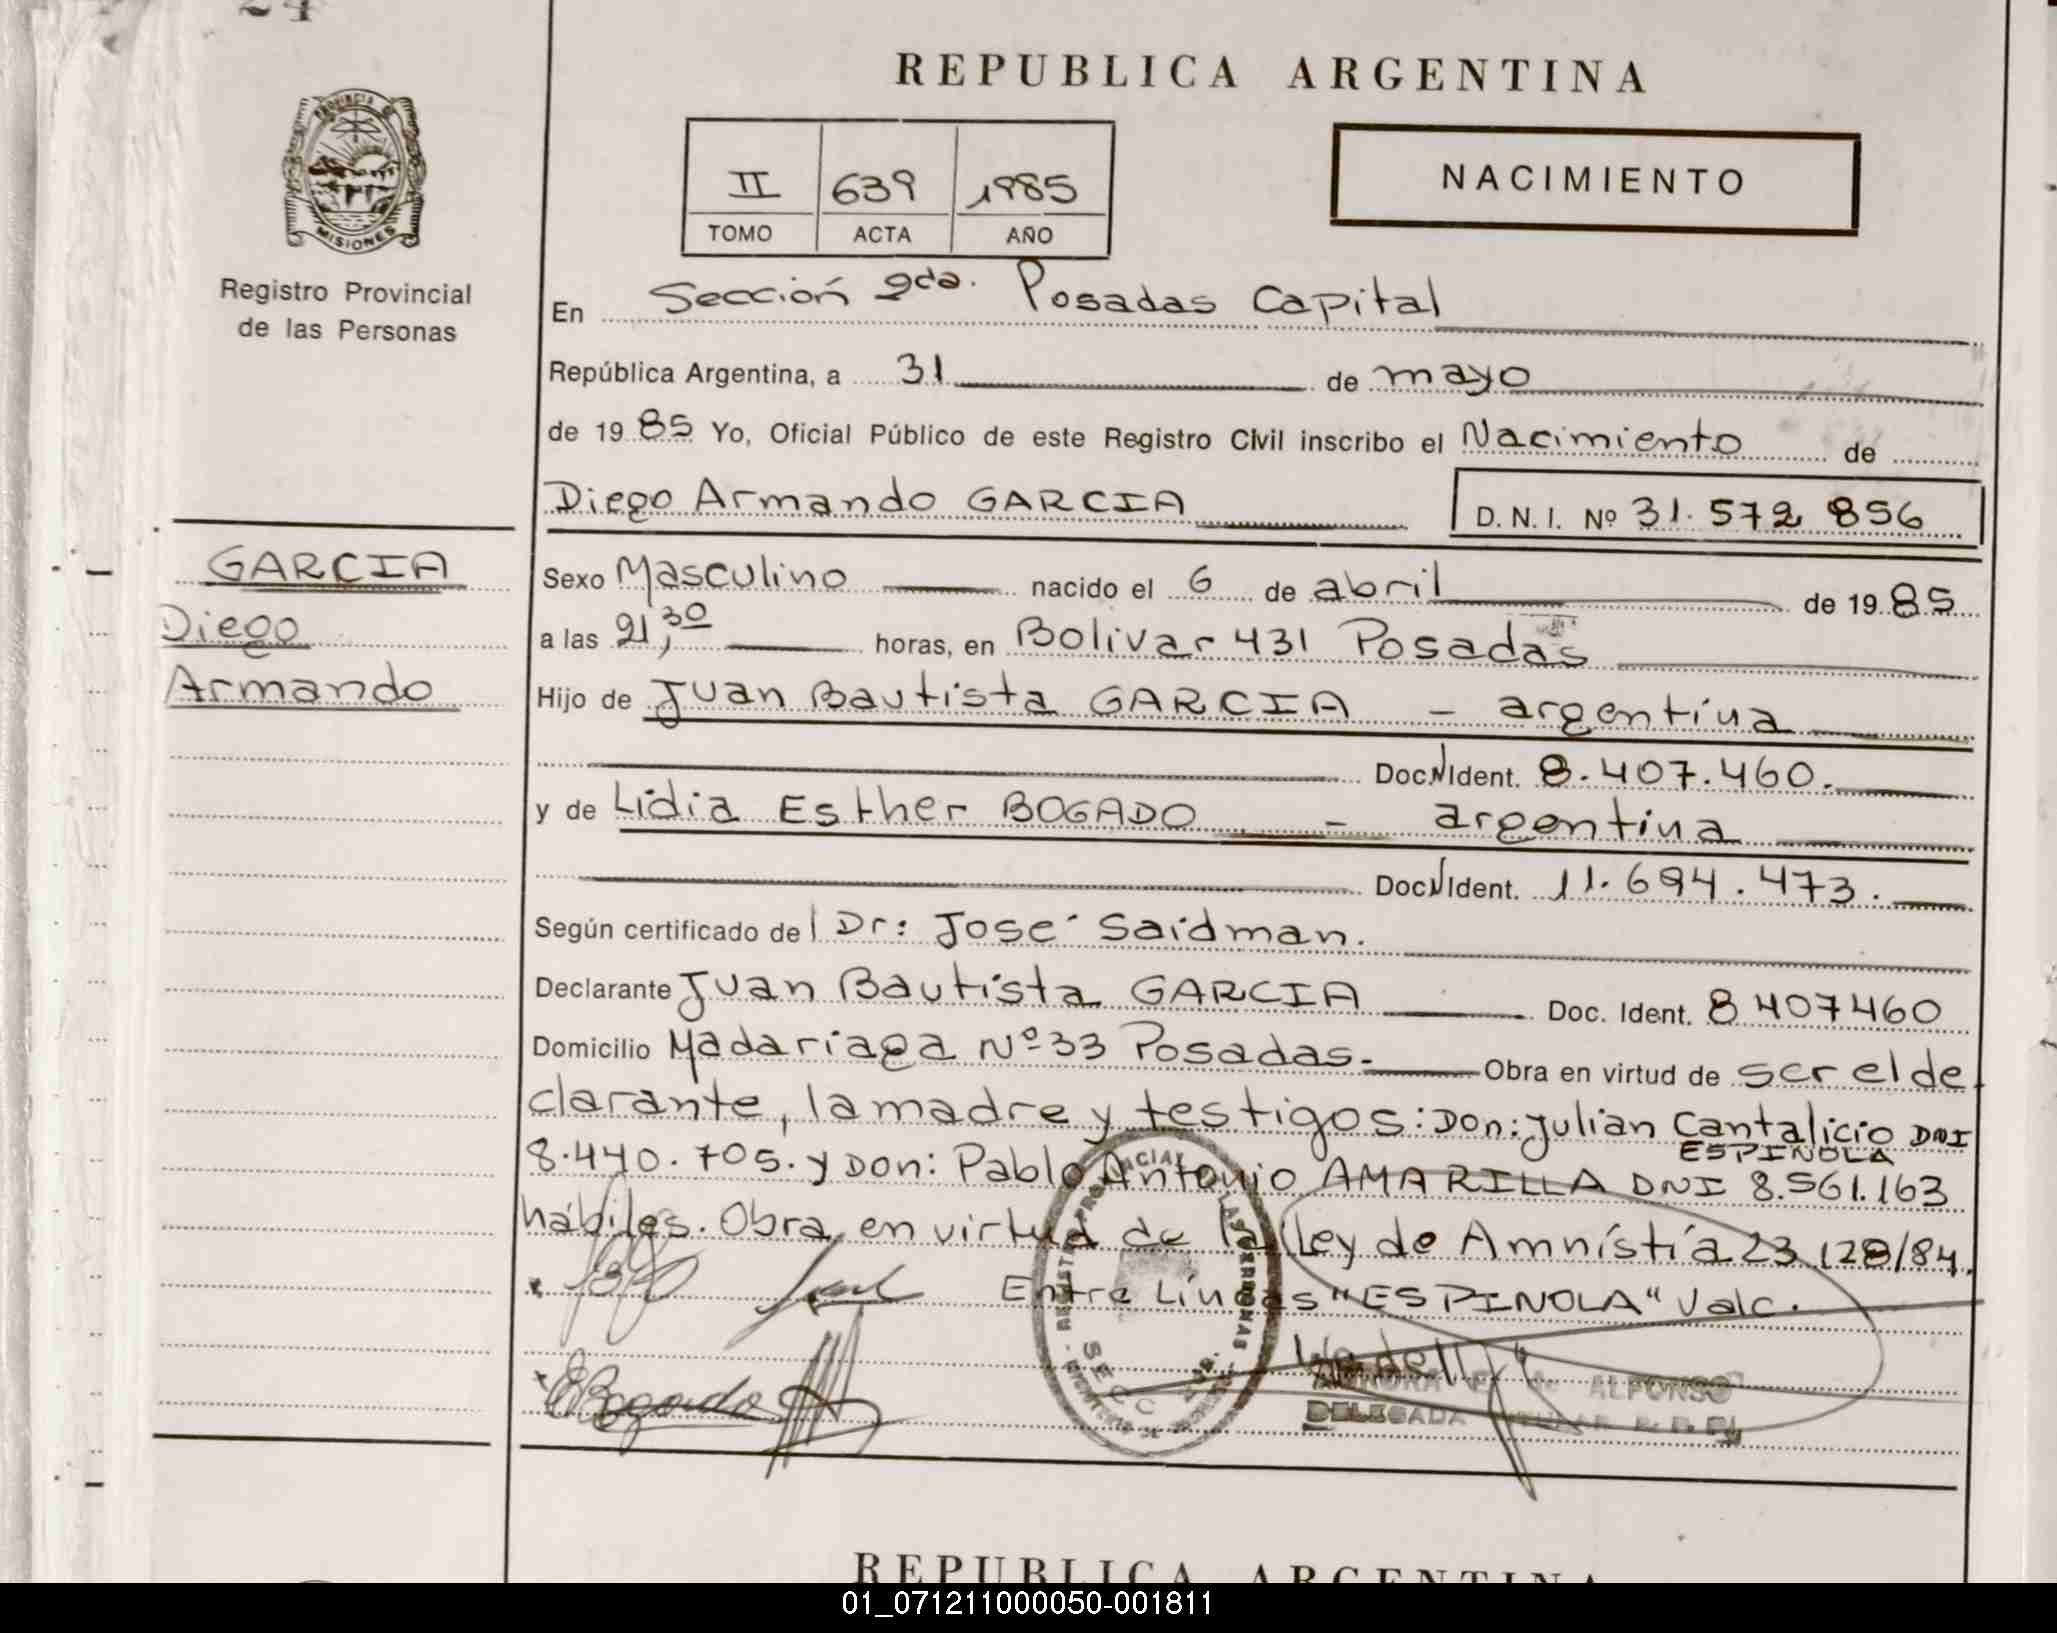 REPUBLICA ARGENTINA
PROVINCIA DE
MISIONES
II 639 1985
TOMO ACTA AÑO
NACIMIENTO
Registro Provincial
de las Personas
En Sección 2da. Posadas Capital
República Argentina, a 31 de mayo
de 1985 Yo, Oficial Público de este Registro Civil inscribo el Nacimiento de
Diego Armando GARCIA D. N. I. Nº 31.572 856
GARCIA
Diego
Armando
Sexo Masculino nacido el 6 de abril de 1985
a las 21,30 horas, en Bolivar 431 Posadas
Hijo de Juan Bautista GARCIA - argentina
Doc. N Ident. 8.407.460.
y de Lidia Esther BOGADO - argentina
Doc. N Ident. 11.694.473.
Según certificado del Dr: José Saidman.
Declarante Juan Bautista GARCIA Doc. Ident. 8 407460
Domicilio Madariaga Nº 33 Posadas.- Obra en virtud de ser el de
clarante, la madre y testigos: Don: Julian Cantalicio DNI
ESPINOLA
8.440.705. y Don: Pablo Antonio AMARILLA DNI 8.561.163
hábiles. Obra en virtud de la Ley de Amnistía 23.128/84.
Entre Líneas "ESPINOLA" Vale.
EBogado
SECC
ALFONSO
DELEGADA
REPUBLICA ARGENTINA
01_071211000050-001811